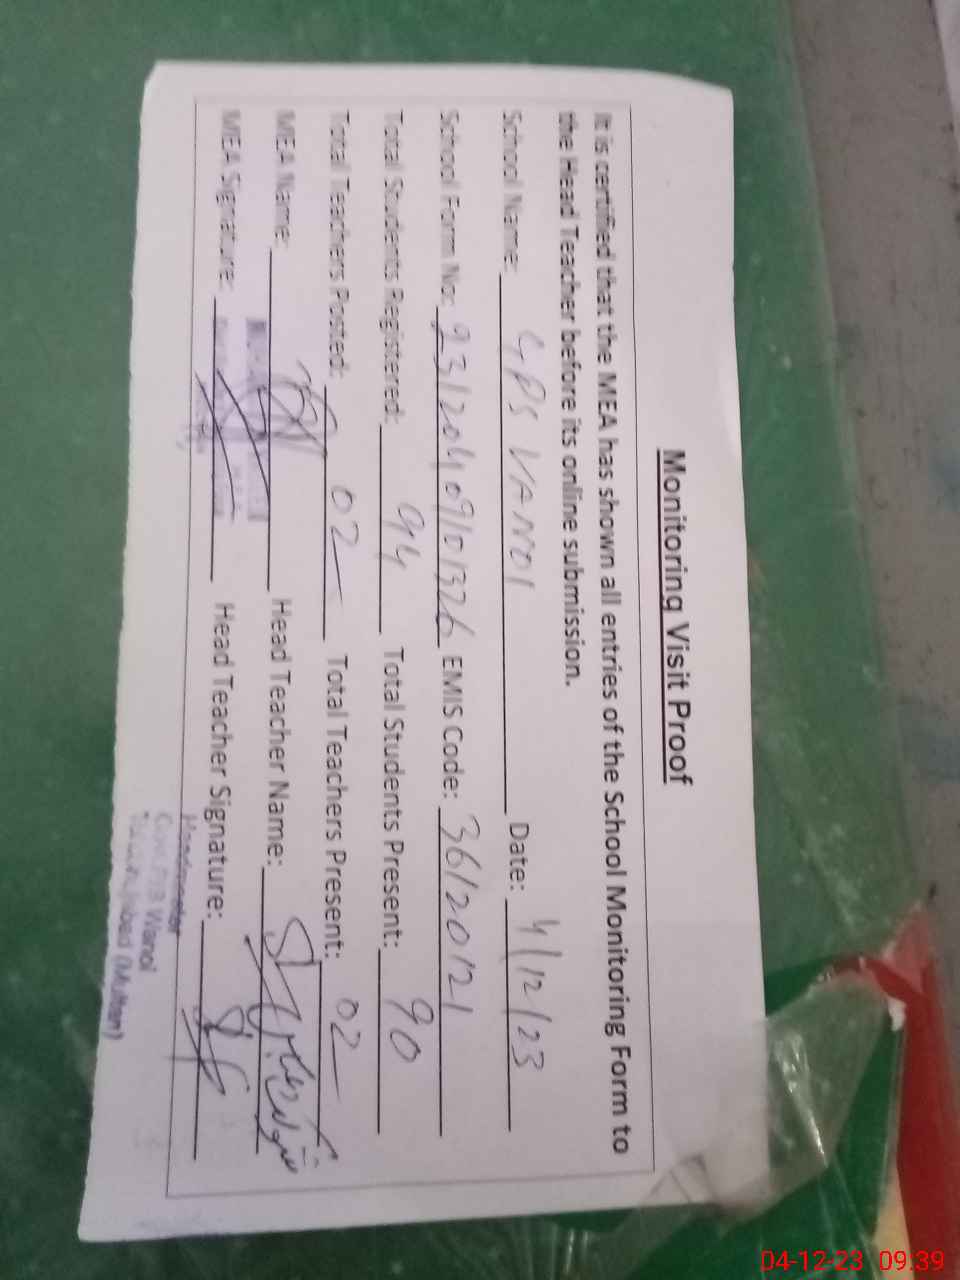 Monitoring Visit Proof
It is certified that the MEA has shown all entries of the School Monitoring Form to
the Head Teacher before its online submission.
School Name: GPS VANOI Date: 4/12/23
School Form No: 23120409101326 EMIS Code: 36120121
Total Students Registered: 94 Total Students Present: 90
Total Teachers Posted: 02 Total Teachers Present: 02
MEA Name: Head Teacher Name:
MEA Signature: Head Teacher Signature:
Headmaster
Wanoi
(Multan)
04-12-23 09:39